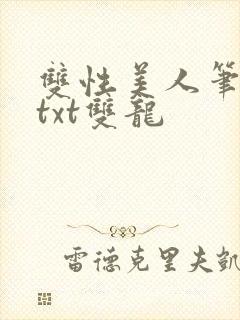 雙性美人筆
txt雙龍
雷德克里夫凱